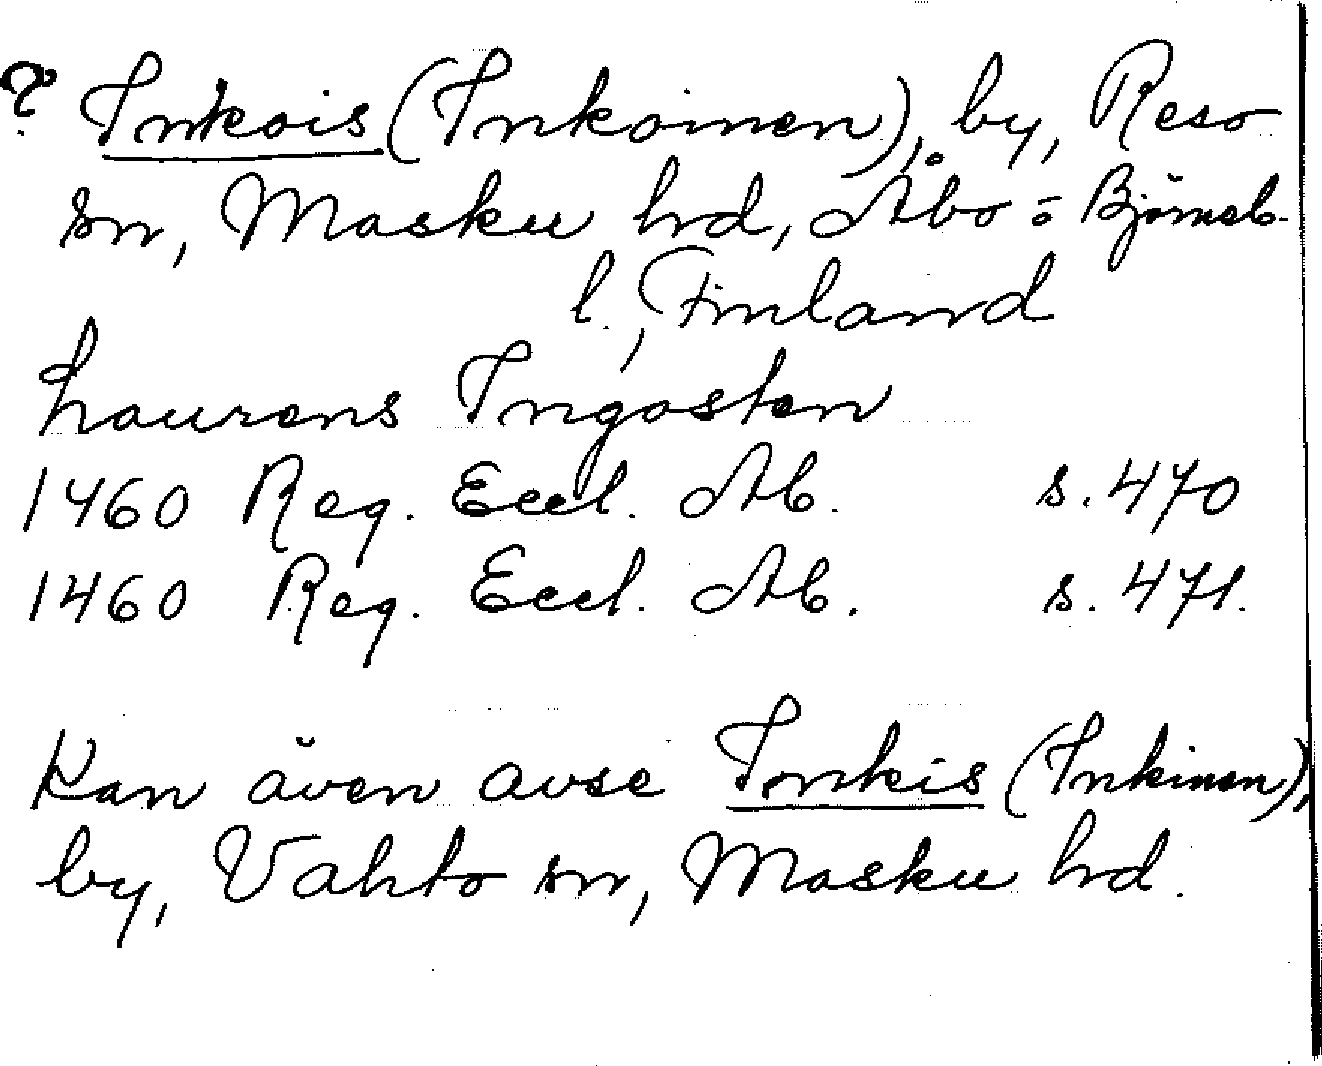 ? Inkois (Inkoinen), by, Reso
sn, Masku hd, Åbo-Björneb.
l., Finland
Laurens Ingosten
1460 Reg. Eccl. Ab. s. 470
1460 Reg. Eccl. Ab. s. 471.
Kan även avse Inkis (Inkinen),
by, Vahto sn, Masku hd.